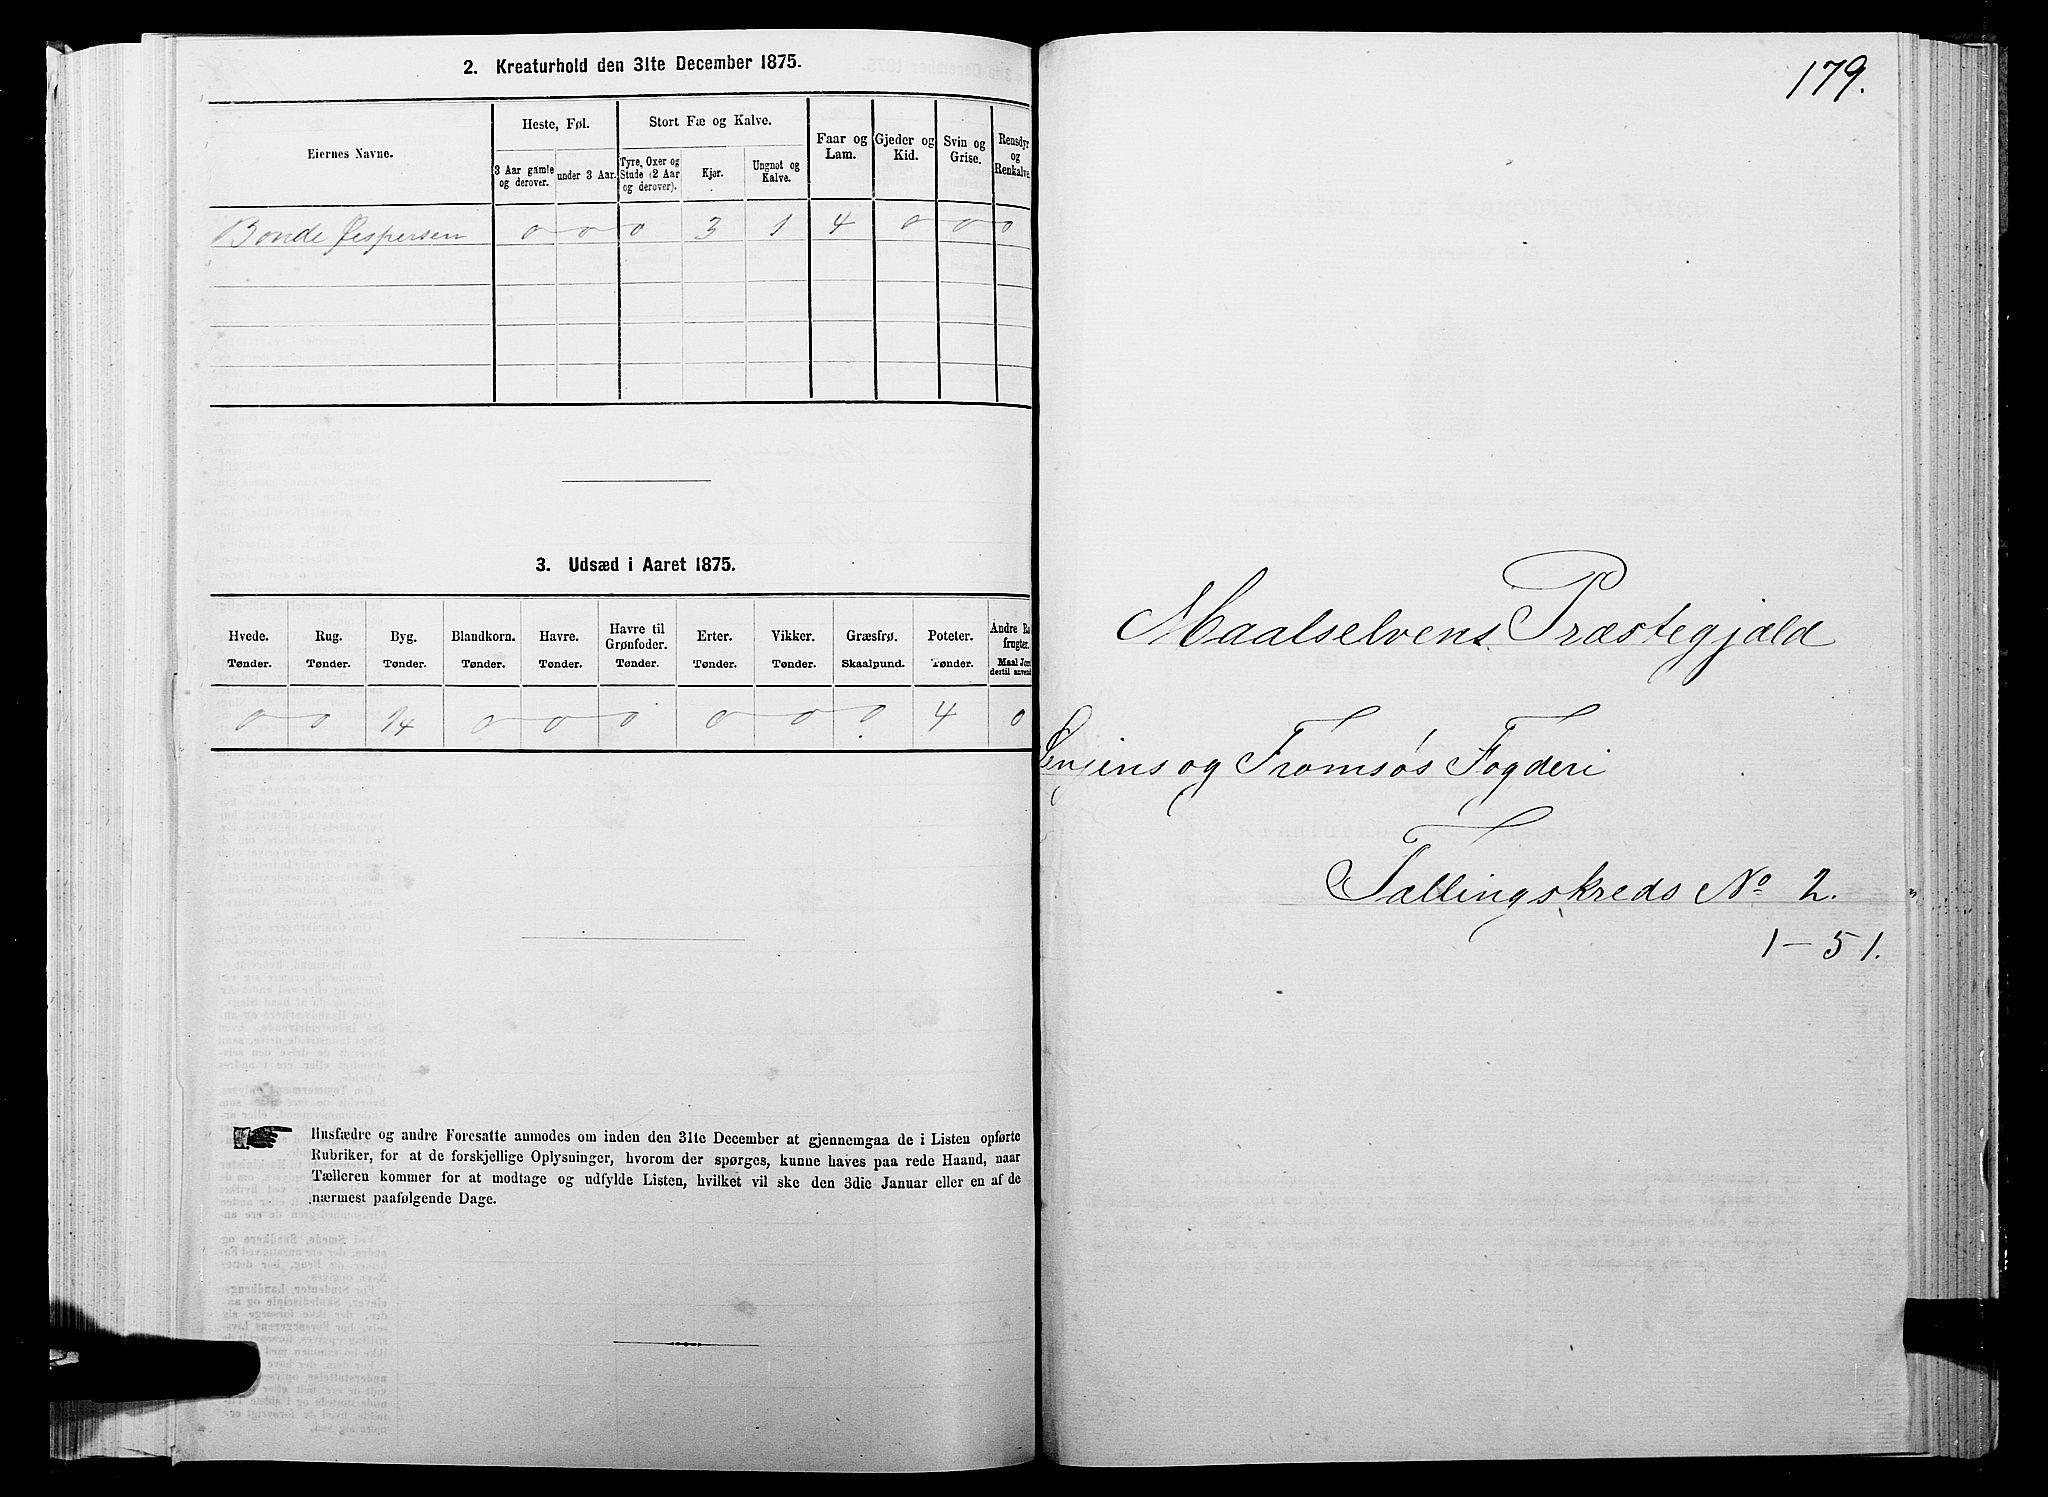 2. Kreaturhold den 31te December 1875.
Eiernes Navne.
Heste, Føl.
Stort Fæ og Kalve.
Faar og Lam.
Gjeder og Kid.
Svin og Grise.
Rensdyr og Renkalve.
3 Aar gamle og derover.
under 3 Aar.
Tyre, Oxer og Stude (2 Aar og derover).
Kjør.
Ungnøt og Kalve.
Bonde Jespersen 0 0 0 3 1 4 0 0 0
3. Udsæd i Aaret 1875.
Hvede. Rug. Byg. Blandkorn. Havre. Havre til Grønfoder. Erter. Vikker. Græsfrø. Poteter. Andre
Tønder. Tønder. Tønder. Tønder. Tønder. Tønder. Tønder. Tønder. Skaalpund. Tønder. Maal
0 0 1/4 0 0 0 0 0 0 4 0
Husfædre og andre Foresatte anmodes om inden den 31te December at gjennemgaa de i Listen opførte
Rubriker, for at de forskjellige Oplysninger, hvorom der spørges, kunne haves paa rede Haand, naar
Tælleren kommer for at modtage og udfylde Listen, hvilket vil ske den 3die Januar eller en af de
nærmest paafølgende Dage.
179.
Maalselvens Præstegjæld
Senjens og Tromsøs Fogderi
Tællingskreds No 2.
1-51.